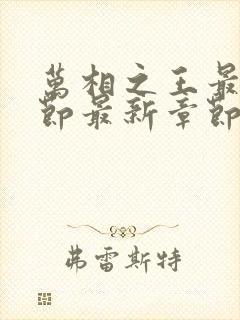 萬相之王最
節最新章節
弗雷斯特